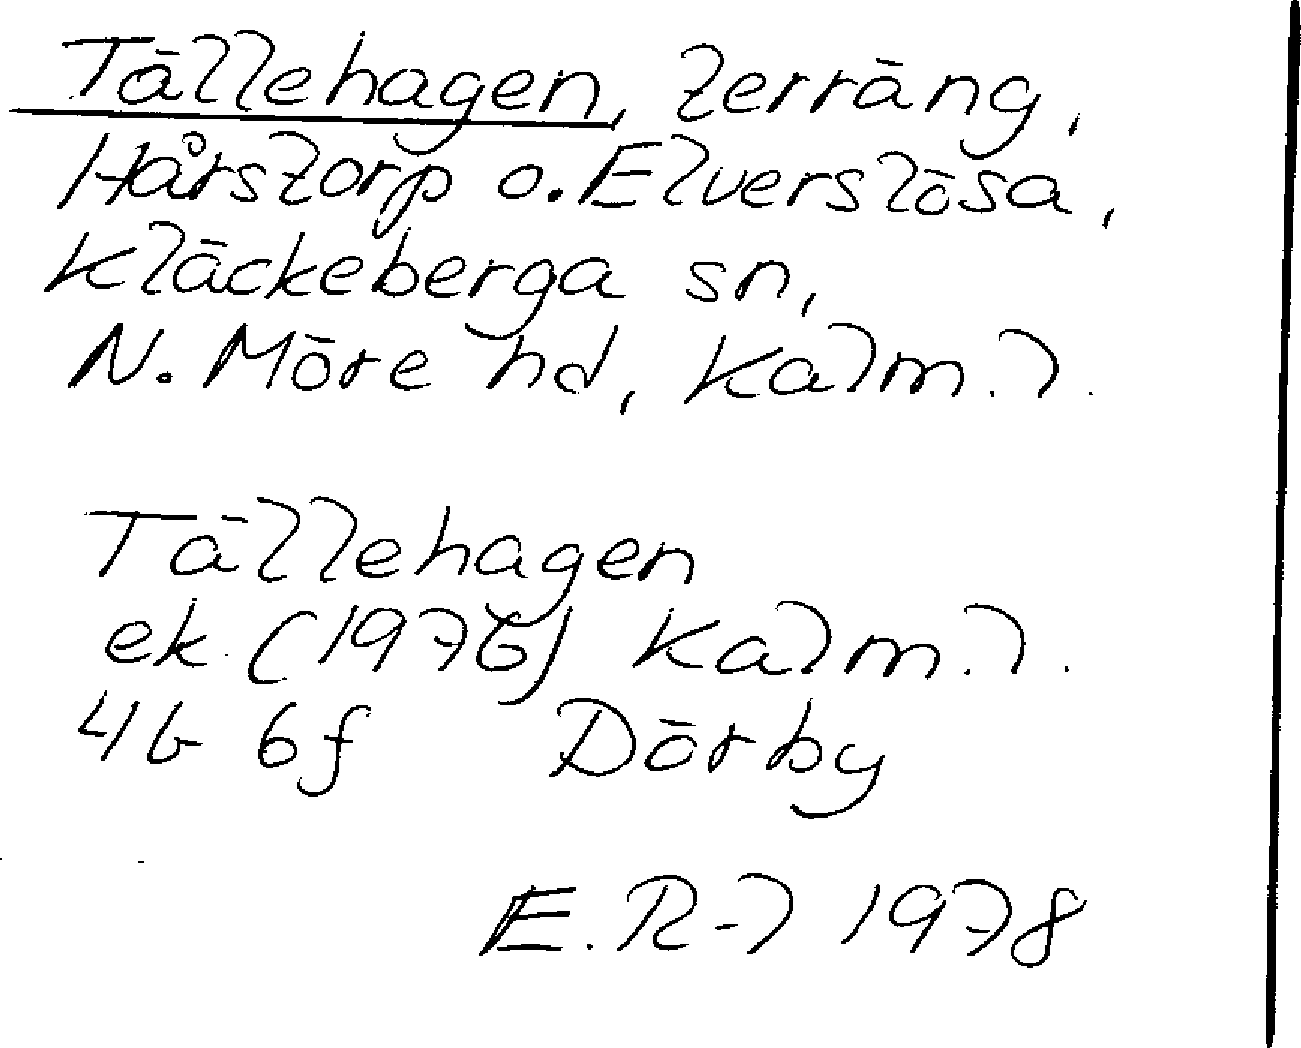 Tällehagen, terräng,
Hårstorp o. Elverslösa,
Kläckeberga sn,
N. Möre hd, Kalm. l.
Tällehagen
ek. (1976) Kalm. l.
4G 6f Dörby
E. R-l 1978